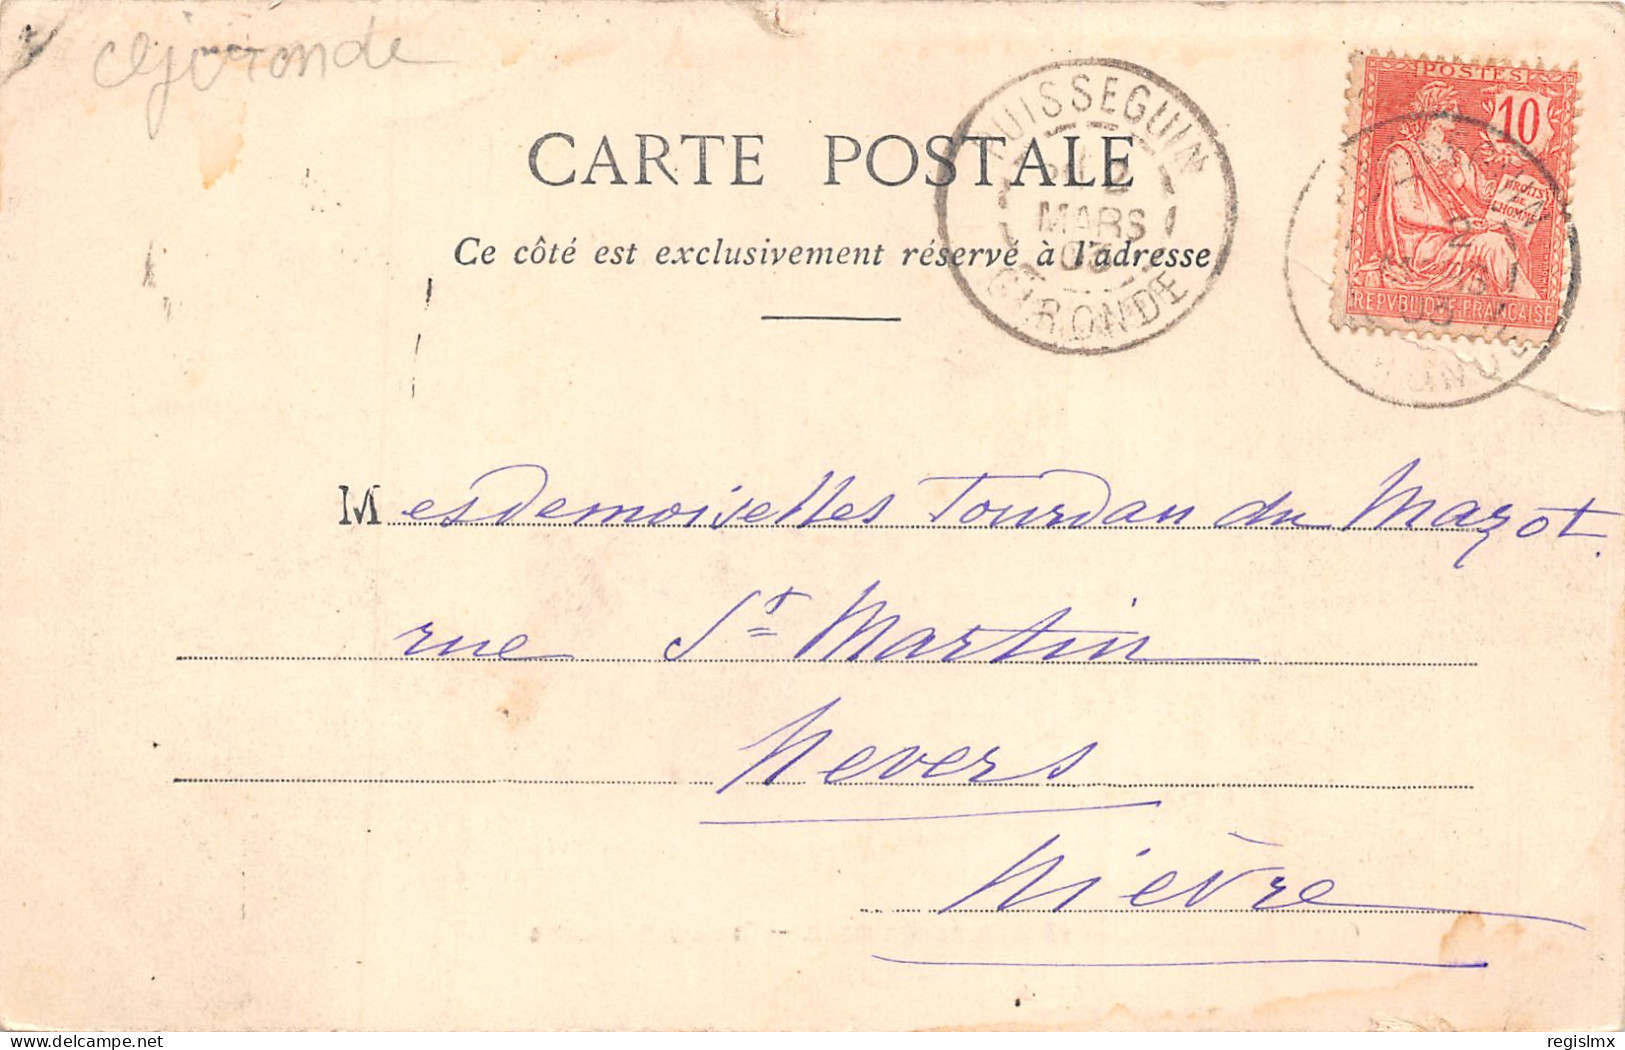 Gironde
CARTE POSTALE
Ce côté est exclusivement réservé à l'adresse
PUISSEGUIN
2
MARS
03
GIRONDE
POSTES
10
DROITS
DE
L'HOMME
REPVBLIQVE FRANÇAISE
2
03
Mesdemoiselles Tourdan du Mazot.
rue St Martin
Nevers
Nièvre
delcampe.net
regislmx